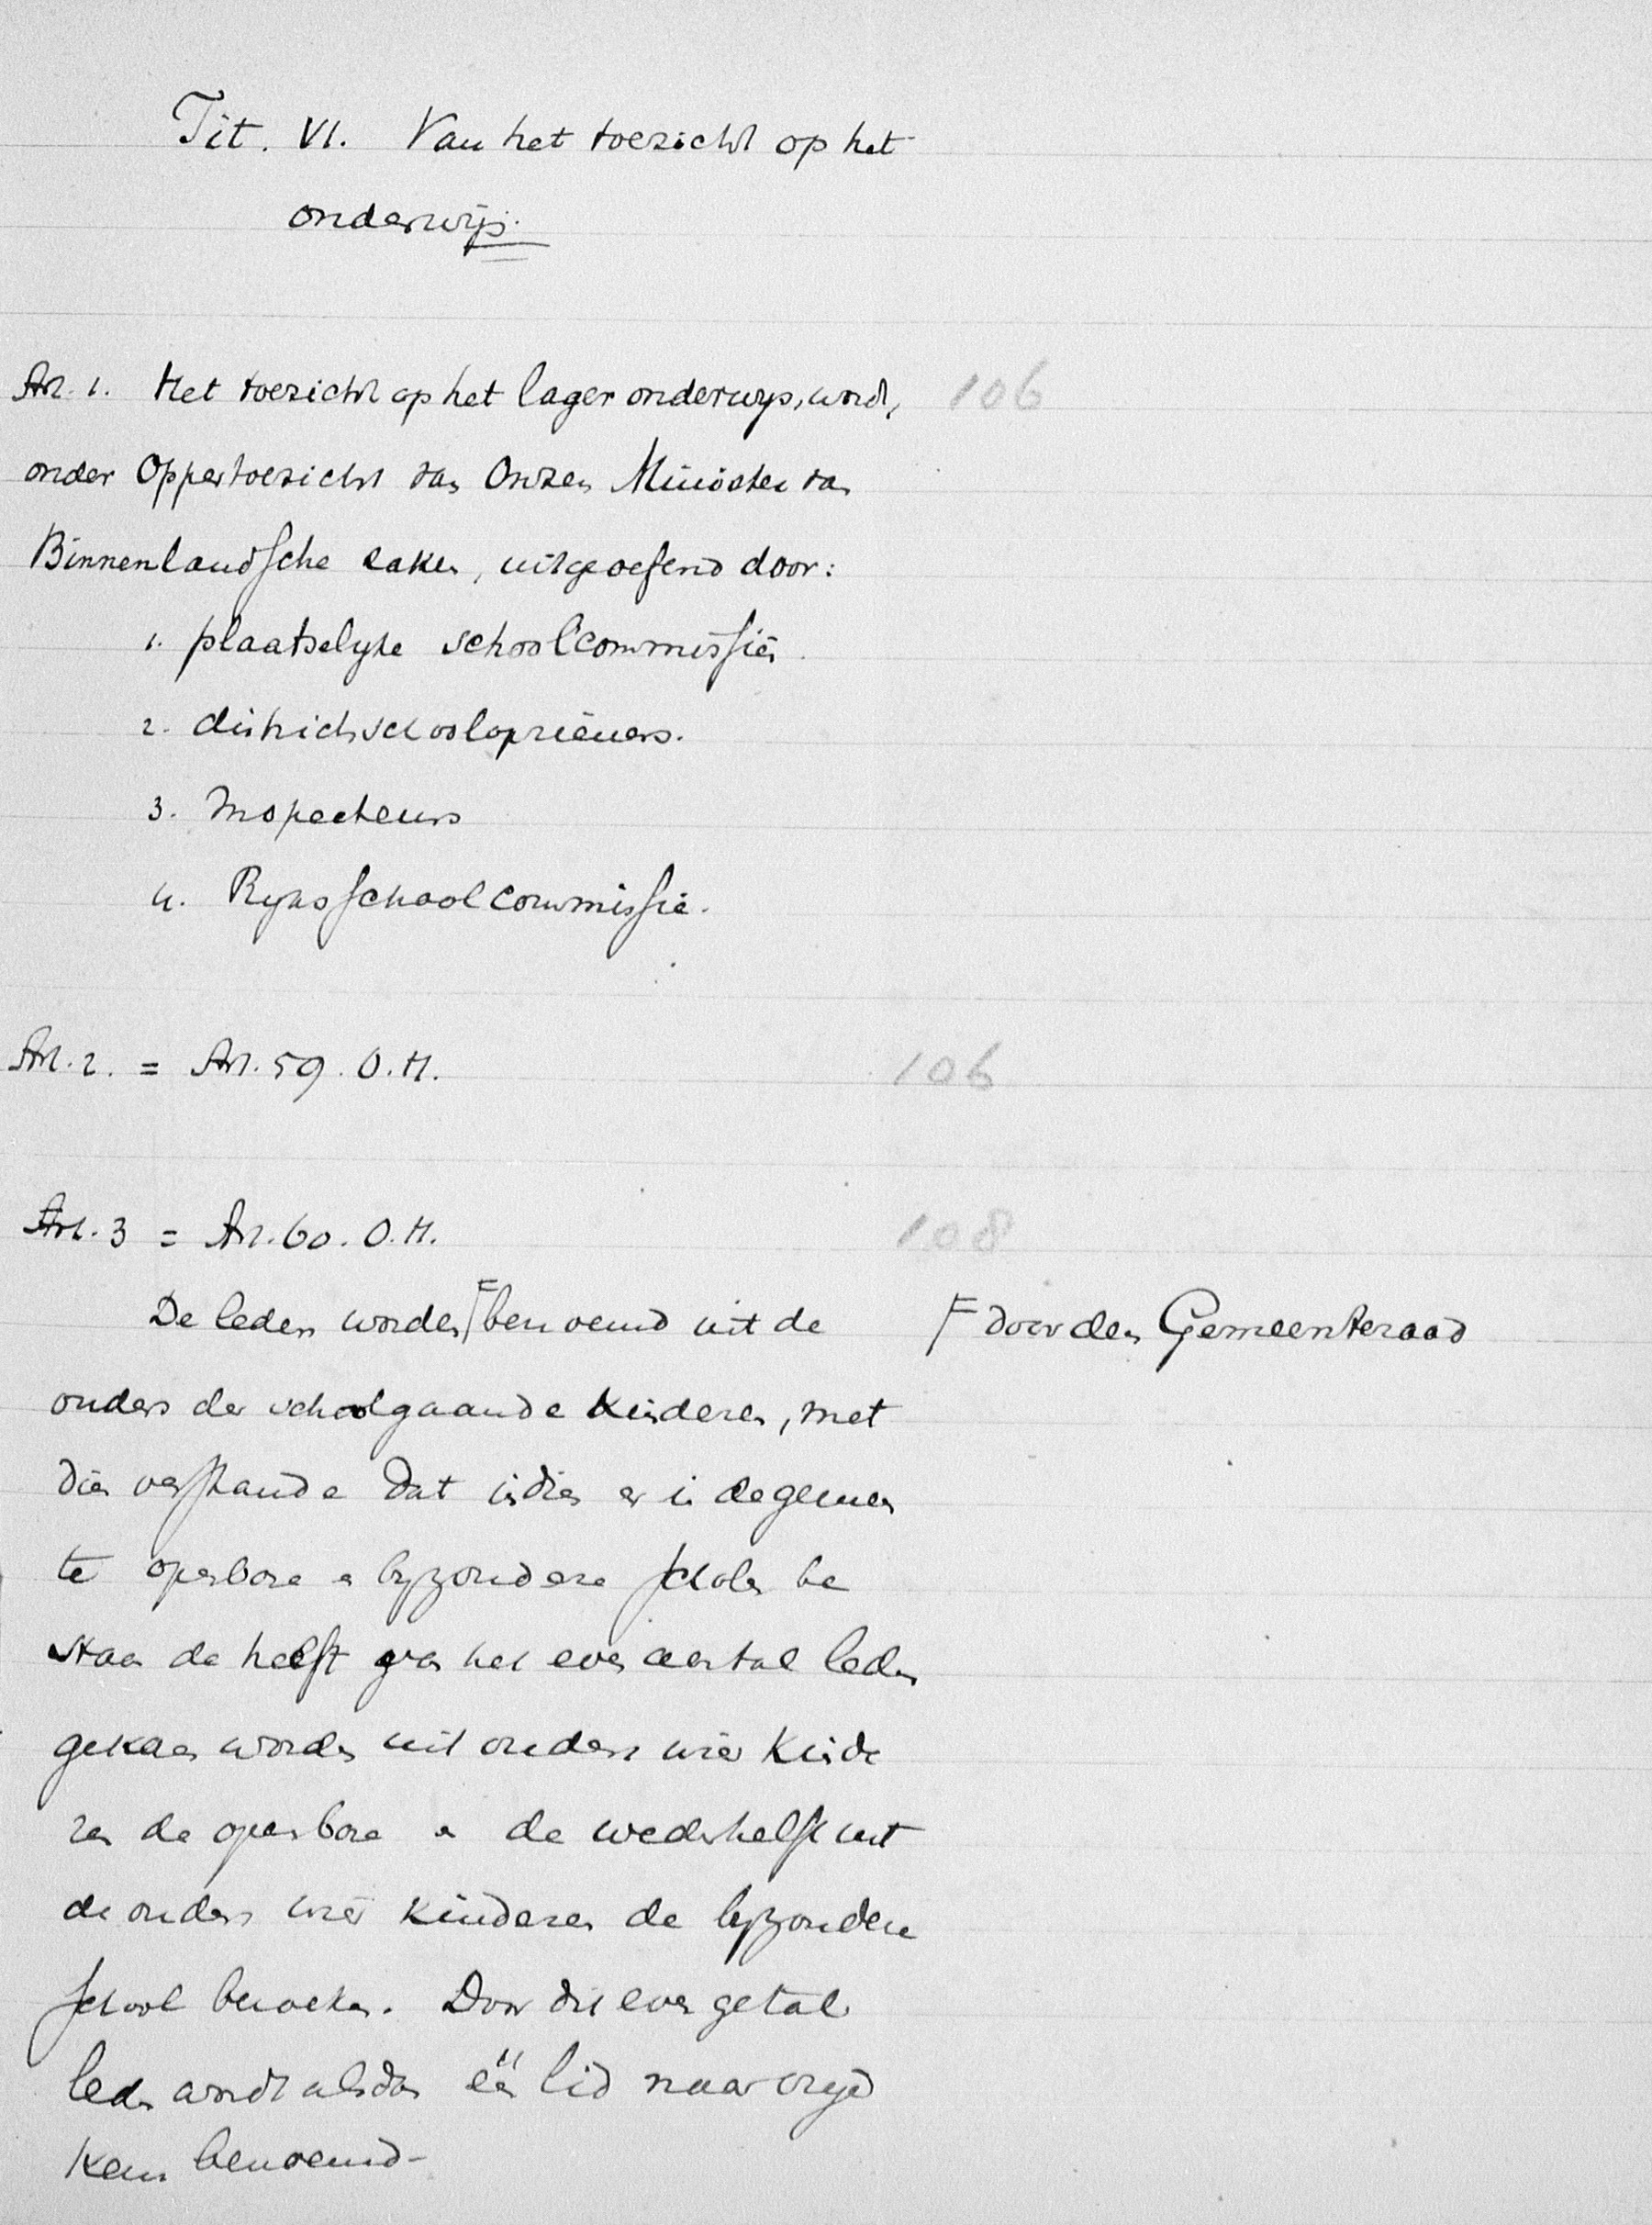 Tit. VI. Van het toezicht op het
onderwijs.
Art. 1. Het toezicht op het lager onderwijs, wordt, 106
onder Oppertoezicht van Onzen Minister van
Binnenlandsche zaken, uitgeoefend door:
1. plaatselijke schoolcommissiën.
2. districtsschoolopzieners.
3. Inspecteurs
4. Rijksschoolcommissie.
Art. 2. = Art. 59. O.H. 106
Art. 3 = Art. 60. O.H. 108
De leden worden benoemd uit de
door den Gemeenteraad
ouders der schoolgaande kinderen, met
dien verstande dat indien er in de gemeen
te openbare en bijzondere scholen be
staan de helft van het even aantal leden
gekozen worden uit ouders wier kinde
ren de openbare en de wederhelft uit
de ouders wier kinderen de bijzondere
school bezoeken. Door dit even getal
leden wordt alsdan één lid naar vrije
keus benoemd.